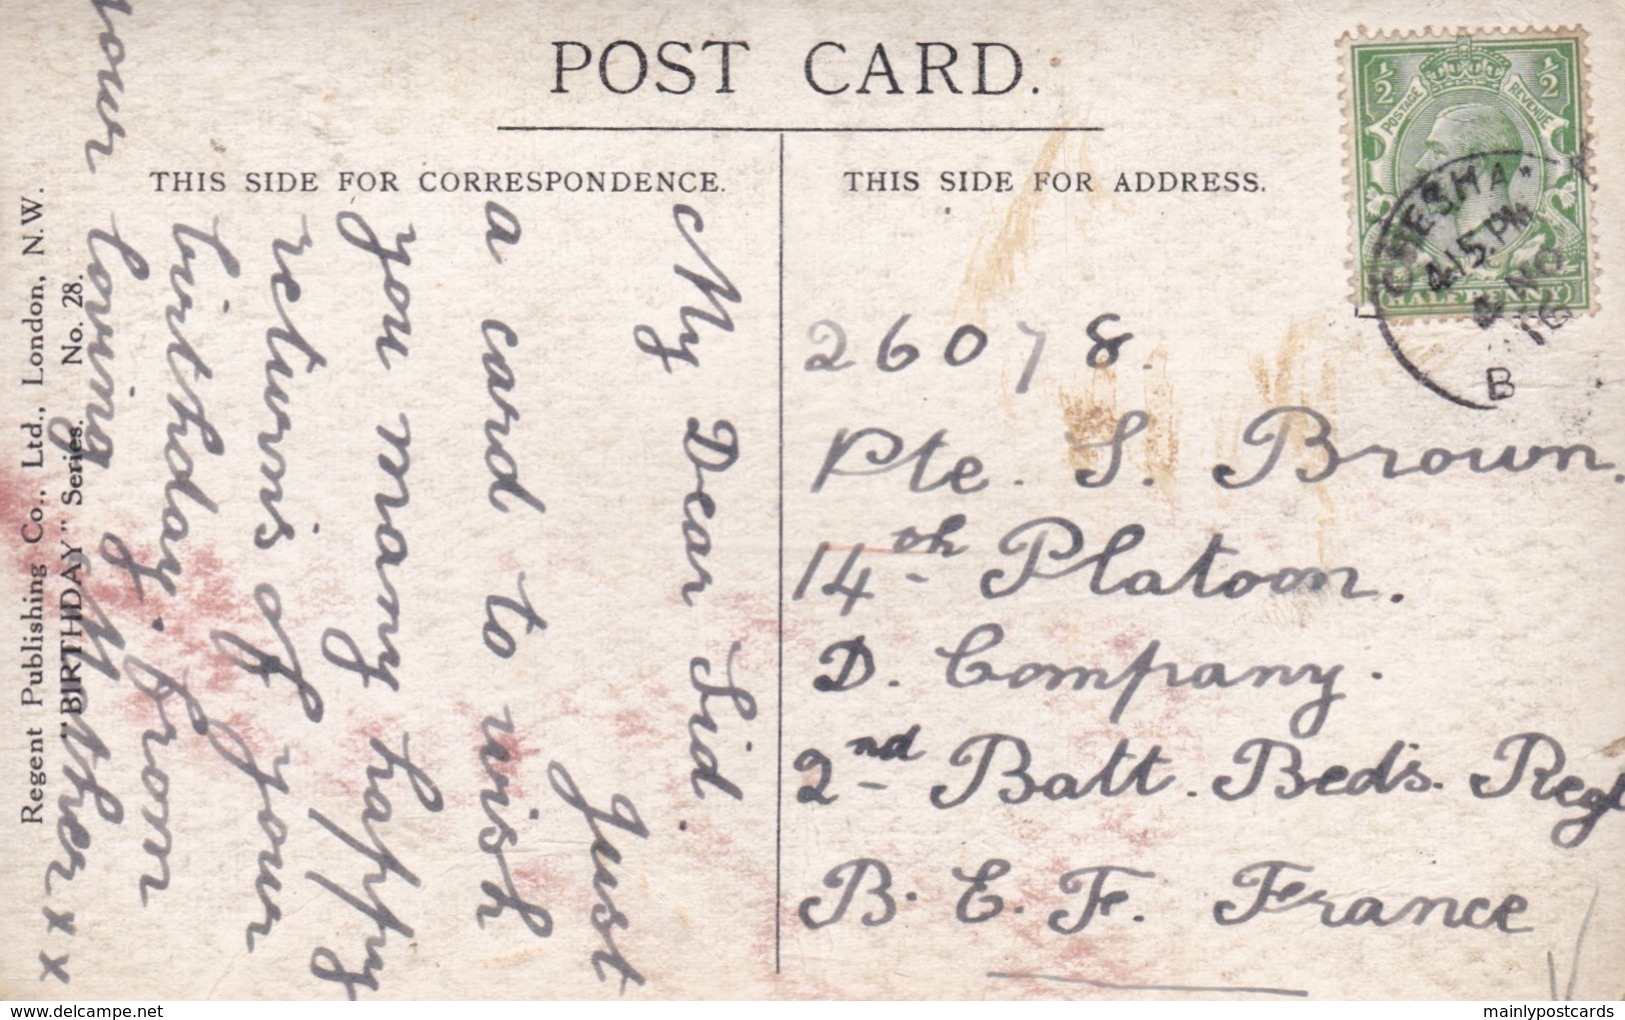 POST CARD.
THIS SIDE FOR CORRESPONDENCE.
THIS SIDE FOR ADDRESS.
My Dear Sid.
Just
a card to wish
you many happy
returns of your
birthday. from
your loving Mother x x x
26078.
Pte. S. Brown.
14th Platoon.
D. Company.
2nd Batt. Beds. Regt
B. E. F. France
Regent Publishing Co., Ltd., London, N.W.
"BIRTHDAY" Series. No. 28.
½ ½
POSTAGE REVENUE
HALFPENNY
CHESHA
4.15.PM
4 NO
16
B
delcampe.net
mainlypostcards